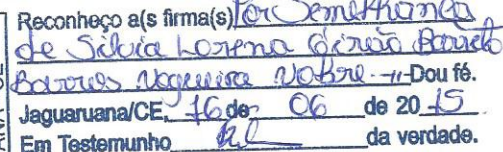 Reconheço a(s) firma(s) Por Semelhança
de Silvia Lorena Girão Barreto
Barros Nogueira Nobre. -11- Dou fé.
Jaguaruana/CE, 16 de 06 de 2015
Em Testemunho da verdade.